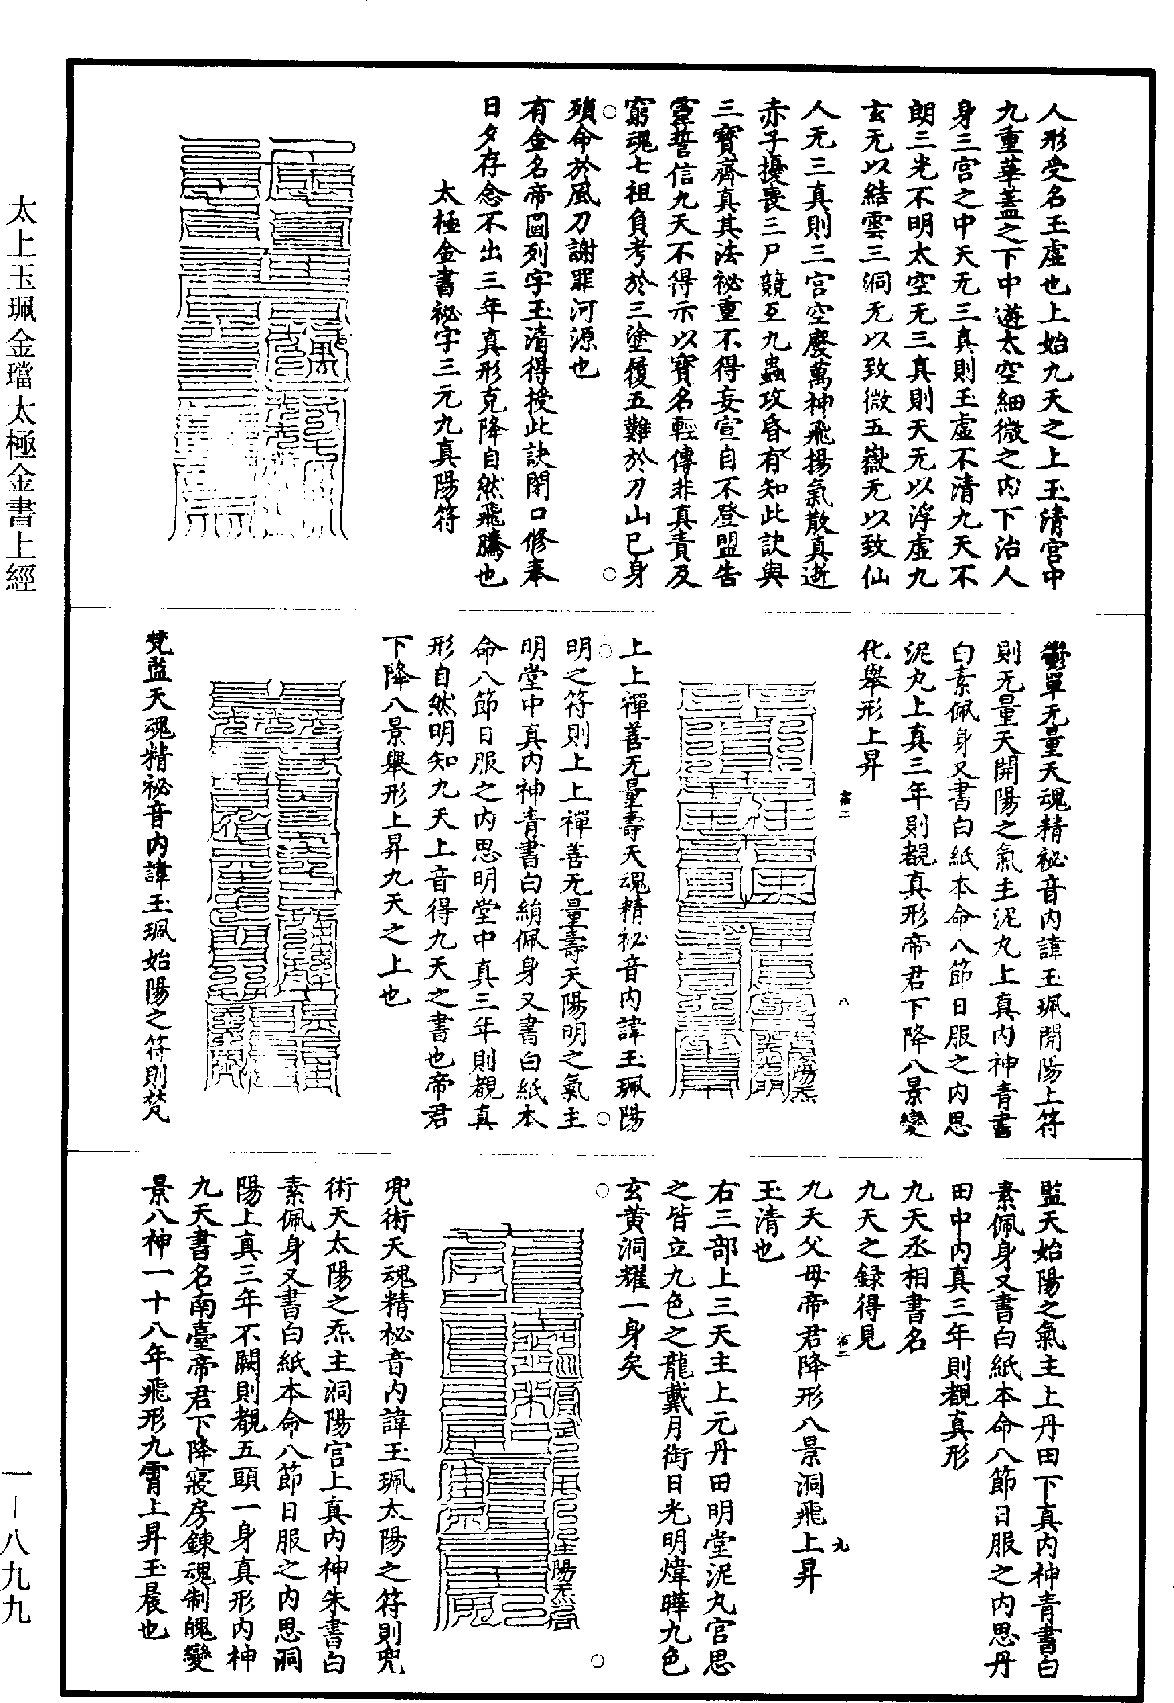 人形受名玉虛也上始九天之上玉清宮中
九重華蓋之下中遊太空細微之內下治人
身三宮之中天无三真則玉虛不清九天不
朗三光不明太空无三真則天无以浮虛九
玄无以結雲三洞无以致微五嶽无以致仙
人无三真則三宮空廢萬神飛揚氣散真逝
赤子擾喪三尸競互九蟲攻昏有知此訣與
三寶齊真其法祕重不得妄宣自不登盟告
靈誓信九天不得示以寶名輕傳非真責及
窮魂七祖負考於三塗履五難於刀山已身
殞命於風刀謝罪河源也
有金名帝圖列字玉清得授此訣閉口修奉
日夕存念不出三年真形克降自然飛騰也
太極金書祕字三元九真陽符
鬱單无量天魂精祕音內諱玉珮開陽上符
則无量天開陽之氣主泥丸上真內神青書
白素佩身又書白紙本命八節日服之內思
泥丸上真三年則覩真形帝君下降八景變
化舉形上昇
八
上上禪善无量壽天魂精祕音內諱玉珮陽
明之符則上上禪善无量壽天陽明之氣主
明堂中真內神青書白絹佩身又書白紙本
命八節日服之內思明堂中真三年則覩真
形自然明知九天上音得九天之書也帝君
下降八景舉形上昇九天之上也
梵監天魂精祕音內諱玉珮始陽之符則梵
監天始陽之氣主上丹田下真內神青書白
素佩身又書白紙本命八節日服之內思丹
田中內真三年則覩真形
九天丞相書名
九天之錄得見
九天父母帝君降形八景洞飛上昇
九
玉清也
右三部上三天主上元丹田明堂泥丸宮思
之皆立九色之龍戴月銜日光明煒曄九色
玄黃洞耀一身矣
兜術天魂精祕音內諱玉珮太陽之符則兜
術天太陽之炁主洞陽宮上真內神朱書白
素佩身又書白紙本命八節日服之內思洞
陽上真三年不闕則覩五頭一身真形內神
九天書名南臺帝君下降寢房鍊魂制魄變
景八神一十八年飛形九霄上昇玉晨也
太上玉珮金璫太極金書上經
一—八九九